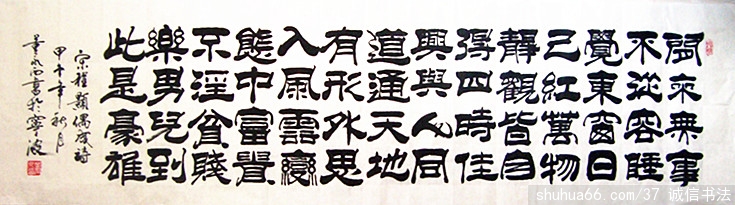 閒來無事
不從容睡
覺東窗日
已紅萬物
靜觀皆自
得四時佳
興與人同
道通天地
有形外思
入風雲變
態中富貴
不淫貧賤
樂男兒到
此是豪雄
宋程顥偶成詩
甲午年秋月
書於寧波
shuhua66.com/37 诚信书法